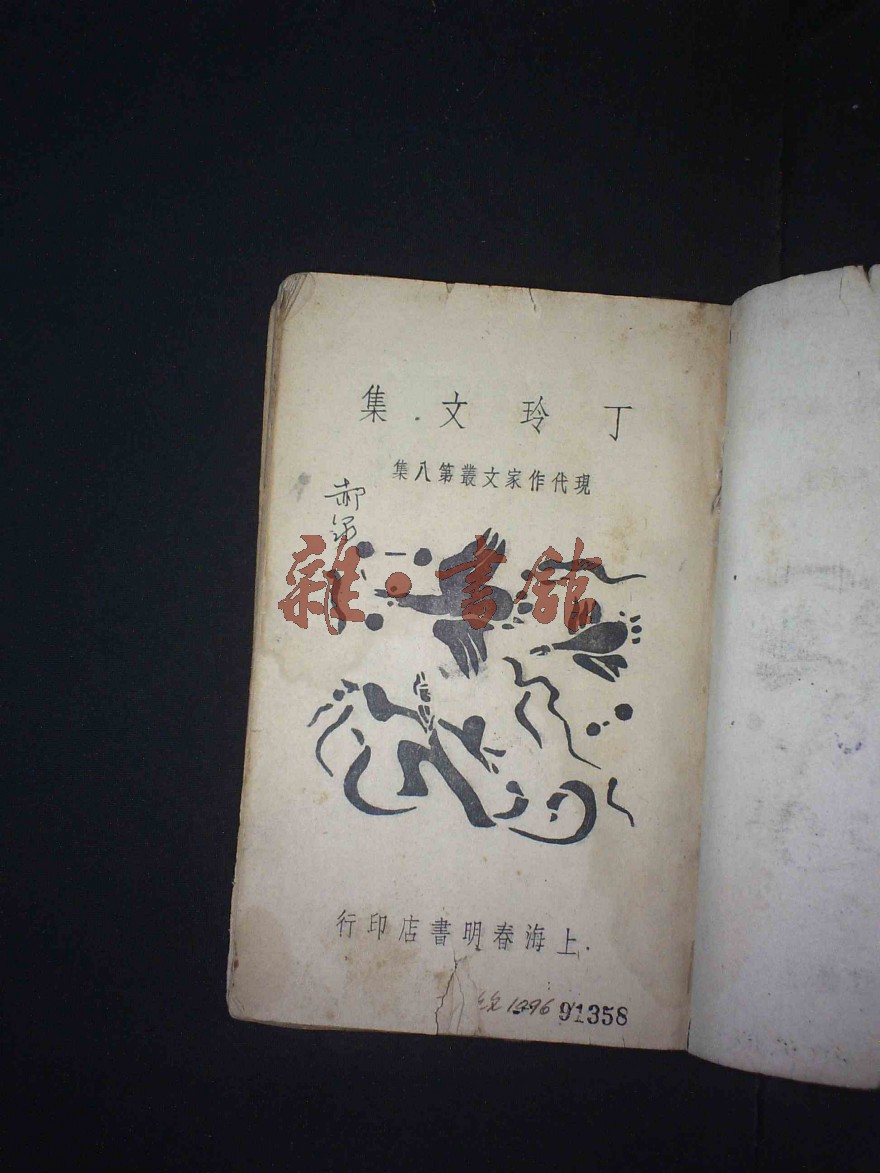 丁玲文集
現代作家文叢第八集
郝
雜·書館
上海春明書店印行
1996 91358